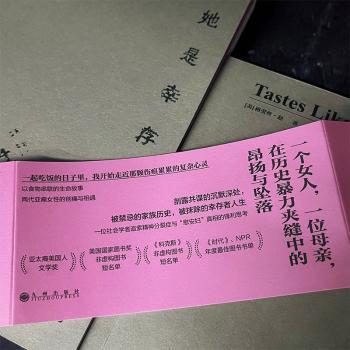 她是幸存
Tastes Lik
一个女人，一位母亲，
在历史暴力夹缝中的
昂扬与坠落
一起吃饭的日子里，我开始走近那颗伤痕累累的复杂心灵
以食物串联的生命故事
两代亚裔女性的创痛与相遇
剖露共谋的沉默深处，
被禁忌的家族历史，被抹除的幸存者人生
一位社会学者追索精神分裂症与“慰安妇”真相的锋利思考
亚太裔美国人
文学奖
美国国家图书奖
非虚构图书
短名单
《科克斯》
非虚构图书
短名单
《时代》、NPR
年度最佳图书书单
九州出版社
JIUZHOUPRESS